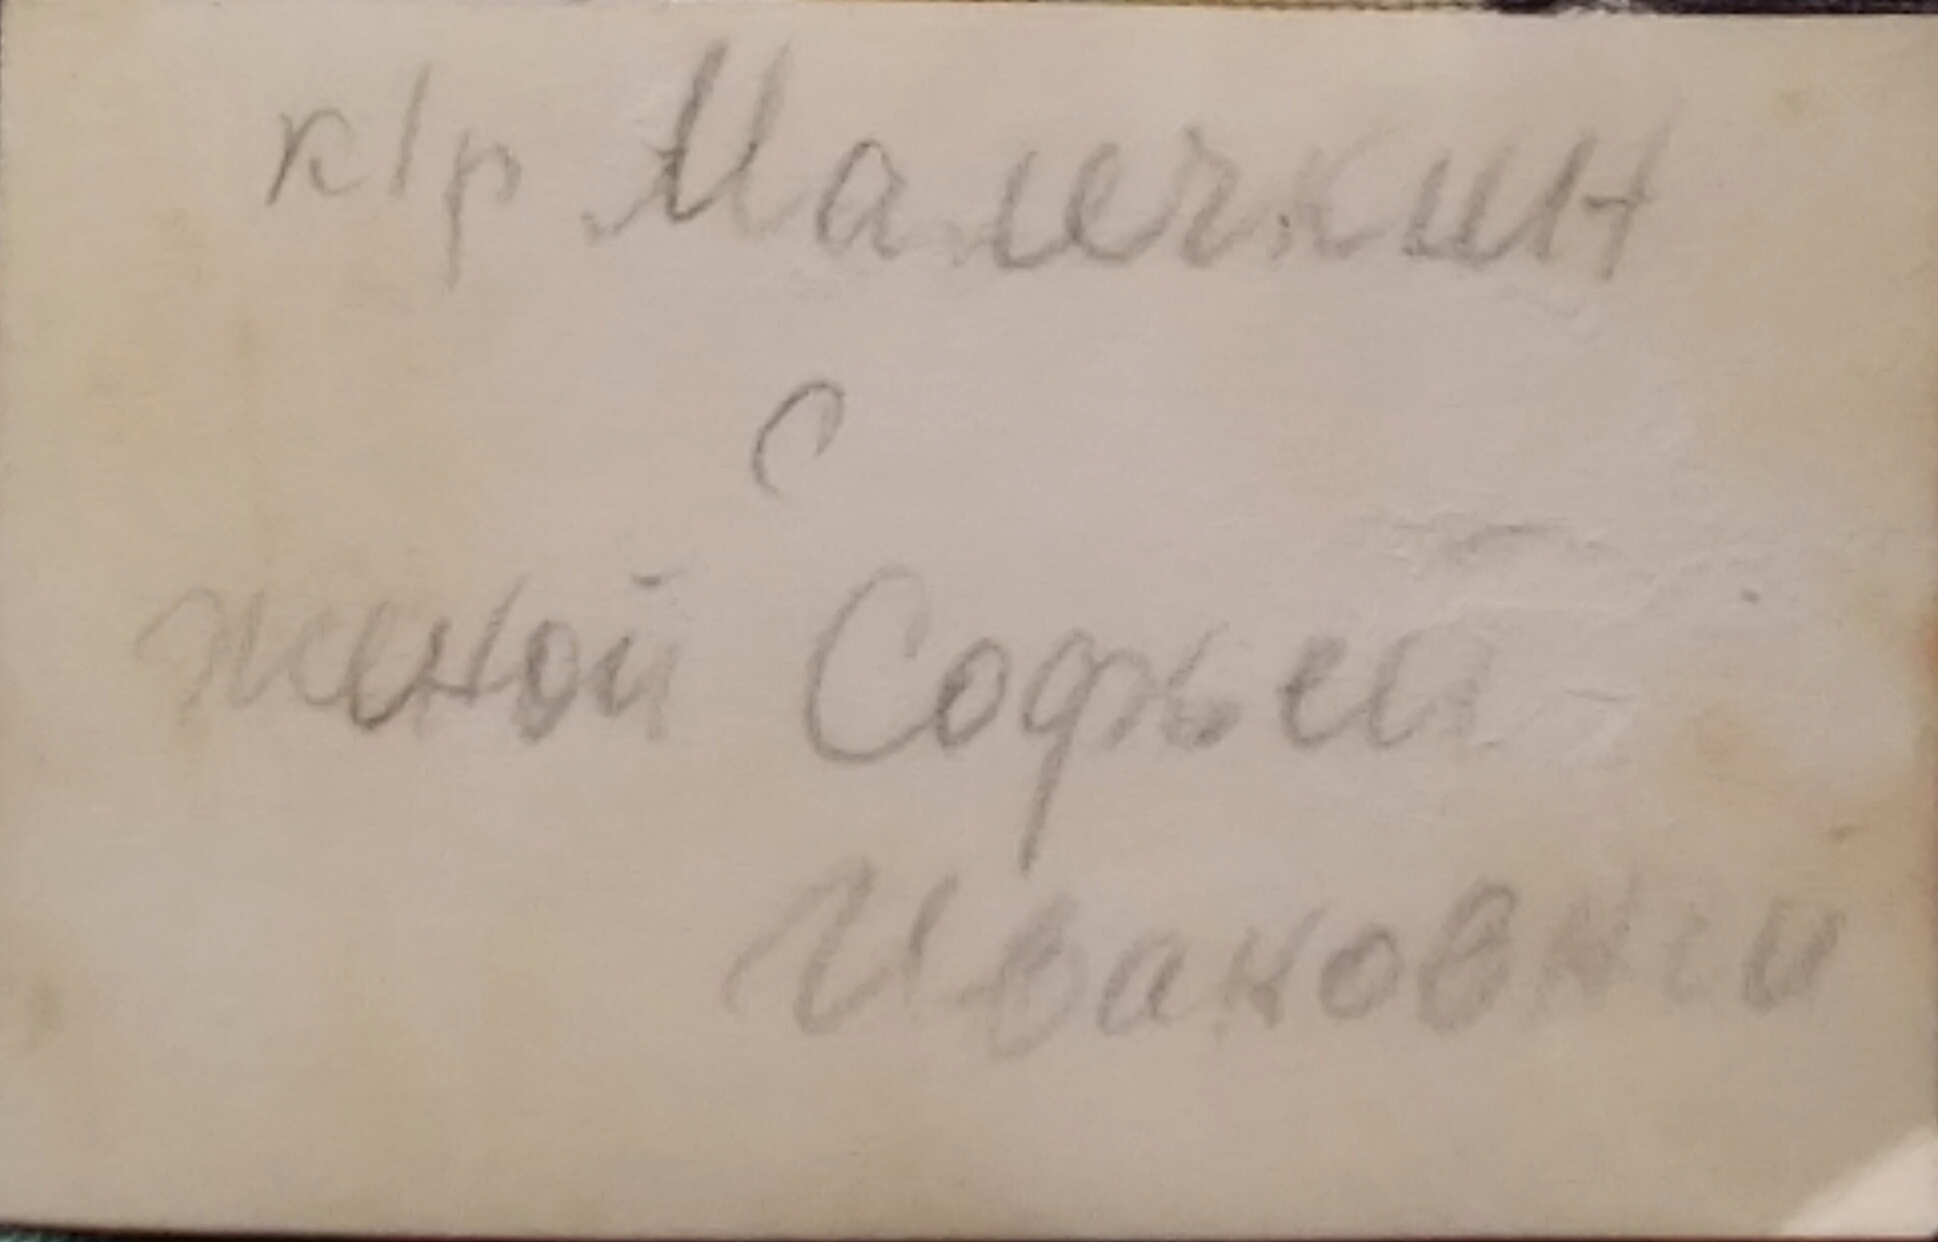 к/р Малечкин
с
женой Софьей
Ивановней